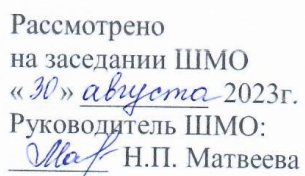 Рассмотрено
на заседании ШМО
«30» августа 2023г.
Руководитель ШМО:
Н.П. Матвеева